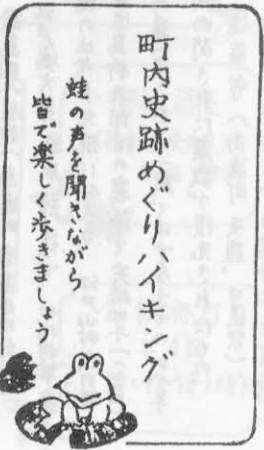 町内史跡めぐりハイキング
蛙の声を聞きながら
皆で楽しく歩きましょう